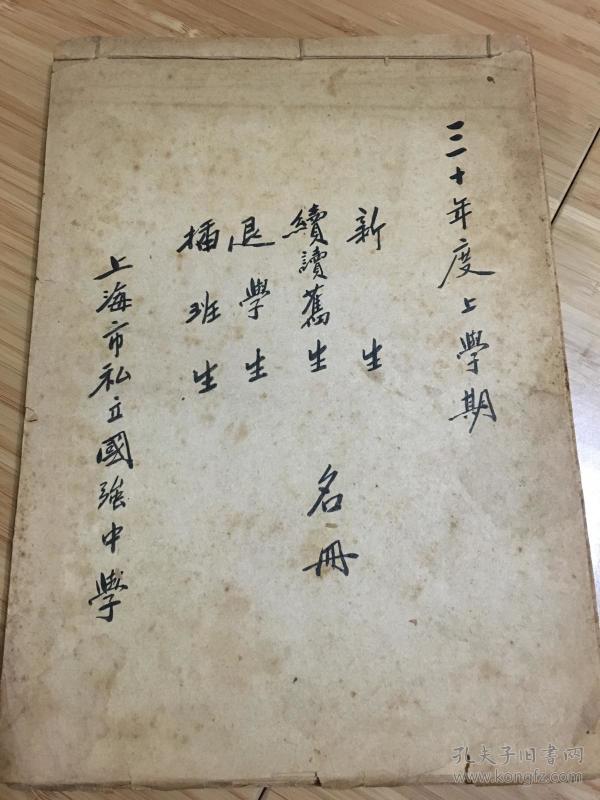 三十年度上學期
新生
續讀舊生
退學生
插班生
名冊
上海市私立國強中學
孔夫子旧书网
www.kongfz.com